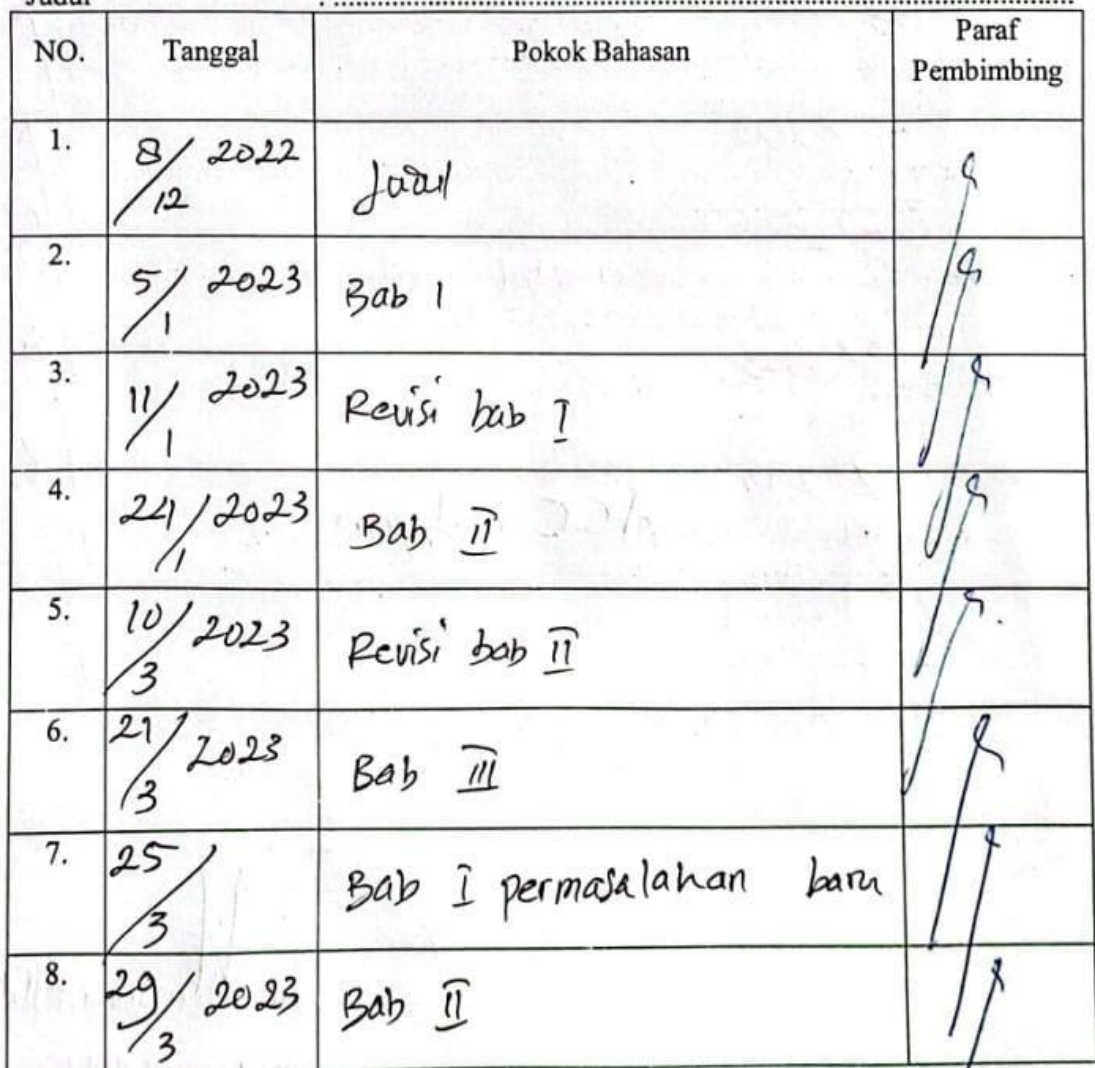 Judul : ..........
NO. Tanggal Pokok Bahasan Paraf Pembimbing
1. 8/12 2022 Judul
2. 5/1 2023 Bab 1
3. 11/1 2023 Revisi bab I
4. 24/1 2023 Bab II
5. 10/3 2023 Revisi bab II
6. 21/3 2023 Bab III
7. 25/3 Bab I permasalahan baru
8. 29/3 2023 Bab II